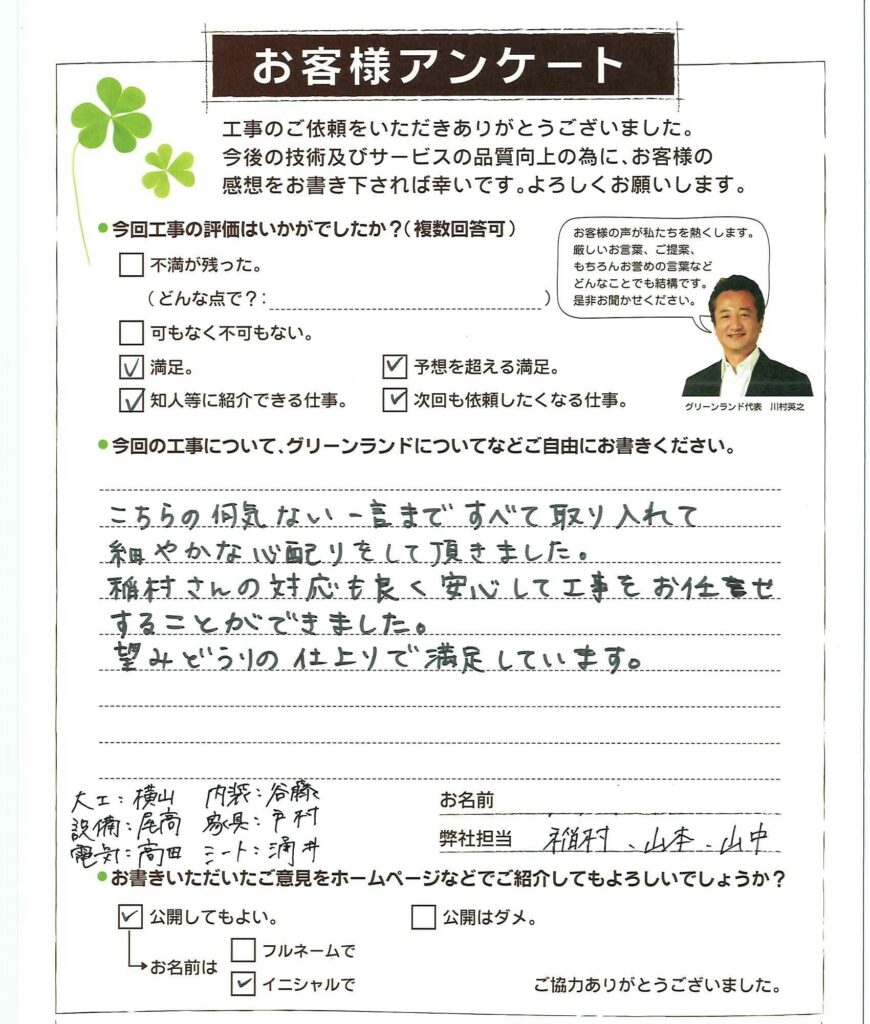 お客様アンケート
工事のご依頼をいただきありがとうございました。
今後の技術及びサービスの品質向上の為に、お客様の
感想をお書き下されば幸いです。よろしくお願いします。
今回工事の評価はいかがでしたか？（複数回答可）
不満が残った。
（どんな点で？：　）
可もなく不可もない。
満足。　予想を超える満足。
知人等に紹介できる仕事。　次回も依頼したくなる仕事。
お客様の声が私たちを熱くします。
厳しいお言葉、ご提案、
もちろんお誉めの言葉など
どんなことでも結構です。
是非お聞かせください。
グリーンランド代表　川村英之
今回の工事について、グリーンランドについてなどご自由にお書きください。
こちらの何気ない一言まで すべて取り入れて
細やかな心配りをして頂きました。
稲村さんの対応も良く 安心して工事をお任せ
することができました。
望みどうりの仕上りで満足しています。
大工：横山　内装：谷藤
設備：尾高　家具：戸村
電気：高田　シート：涌井
お名前
弊社担当　稲村、山本、山中
お書きいただいたご意見をホームページなどでご紹介してもよろしいでしょうか？
公開してもよい。　公開はダメ。
お名前は　フルネームで
イニシャルで
ご協力ありがとうございました。